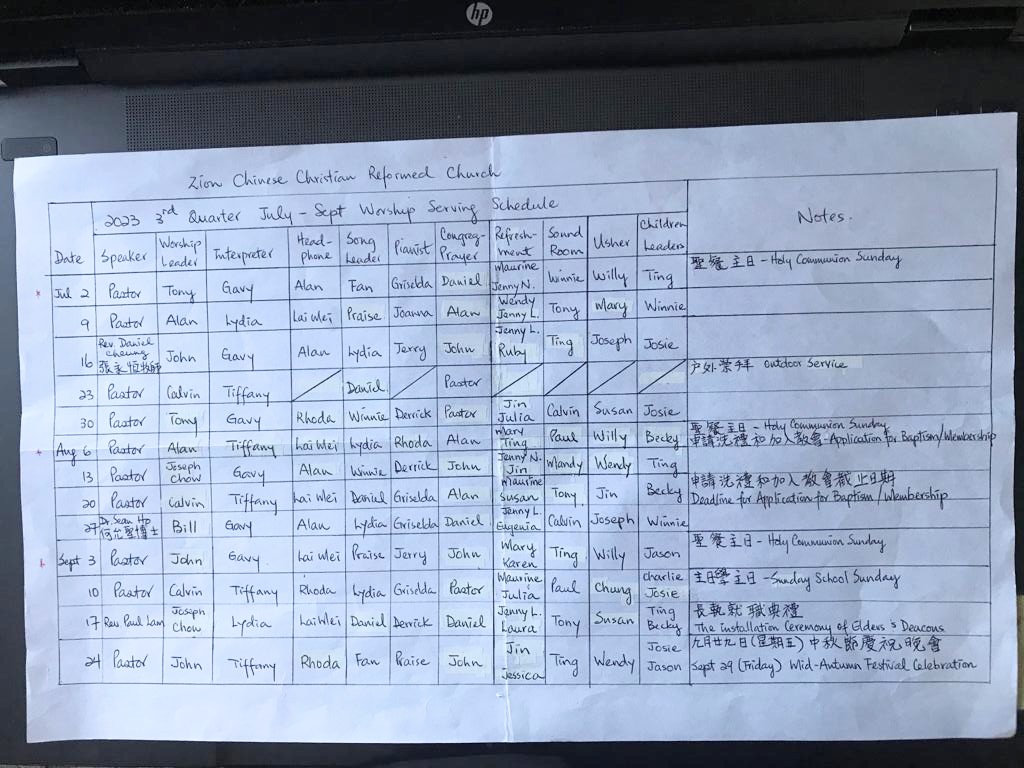 hp
Zion Chinese Christian Reformed Church
2023 3rd Quarter July - Sept Worship Serving Schedule
Notes.
Date Speaker Worship Leader Interpreter Head-phone Song Leader Pianist Congreg-Prayer Refresh-ment Sound Room Usher Children Leaders
* Jul 2 Pastor Tony Gavy Alan Fan Griselda Daniel Maurine Jenny N. Winnie Willy Ting 聖餐主日 - Holy Communion Sunday
9 Pastor Alan Lydia Lai Mei Praise Joanna Alan Wendy Jenny L. Tony Mary Winnie
16 Rev. Daniel Cheung 張永恆牧師 John Gavy Alan Lydia Jerry John Jenny L. Ruby Ting Joseph Josie
23 Pastor Calvin Tiffany Daniel Pastor 户外崇拜 Outdoor Service
30 Pastor Tony Gavy Rhoda Winnie Derrick Pastor Jin Julia Calvin Susan Josie
* Aug 6 Pastor Alan Tiffany Lai Mei Lydia Rhoda Alan Mary Ting Paul Willy Becky 聖餐主日 - Holy Communion Sunday
申請洗禮和加入教會 - Application for Baptism/Membership
13 Pastor Joseph Chow Gavy Alan Winnie Derrick John Jenny N. Jin Mandy Wendy Ting
20 Pastor Calvin Tiffany Lai Mei Daniel Griselda Alan Maurine Susan Tony Jin Becky 申請洗禮和加入教會截止日期
Deadline for Application for Baptism / Membership
27 Dr. Sean Ho 何允聖博士 Bill Gavy Alan Lydia Griselda Daniel Jenny L. Eugenia Calvin Joseph Winnie
* Sept 3 Pastor John Gavy Lai Mei Praise Jerry John Mary Karen Ting Willy Jason 聖餐主日 - Holy Communion Sunday
10 Pastor Calvin Tiffany Rhoda Lydia Griselda Pastor Maurine Julia Paul Chung Charlie Josie 主日學主日 - Sunday School Sunday
17 Rev Paul Lam Joseph Chow Lydia Lai Mei Daniel Derrick Daniel Jenny L. Laura Tony Susan Ting Becky 長執就職典禮
The installation Ceremony of Elders & Deacons
24 Pastor John Tiffany Rhoda Fan Praise John Jin Jessica Ting Wendy Josie Jason 九月廿九日(星期五) 中秋節慶祝晚會
Sept 29 (Friday) Mid-Autumn Festival Celebration